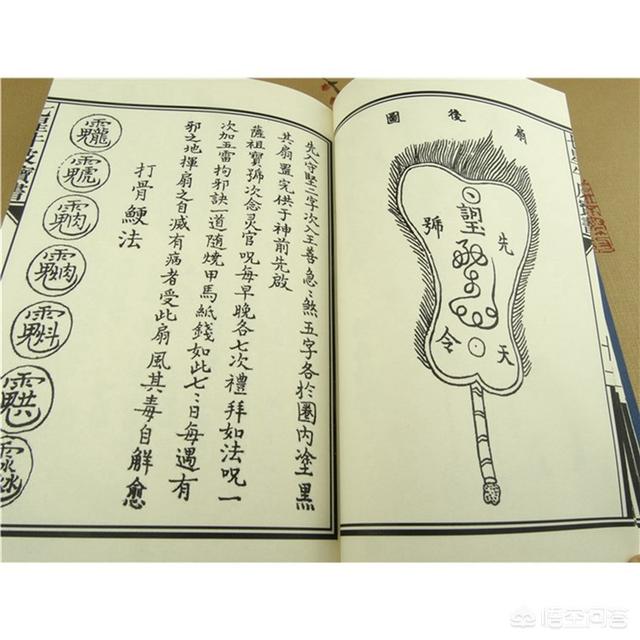 扇後圖
先天
號令
先入守堅二字次入王善急〻煞五字各於圈內塗黑
其扇置完供于神前先啟
薩祖寶號次念灵官咒每早晚各七次禮拜如法咒一
次加五雷拘邪訣一道隨燒甲馬紙錢如此七〻日每遇有
邪之地揮扇之自滅有病者受此扇風其毒自解愈
打骨鯁法
悟空问答